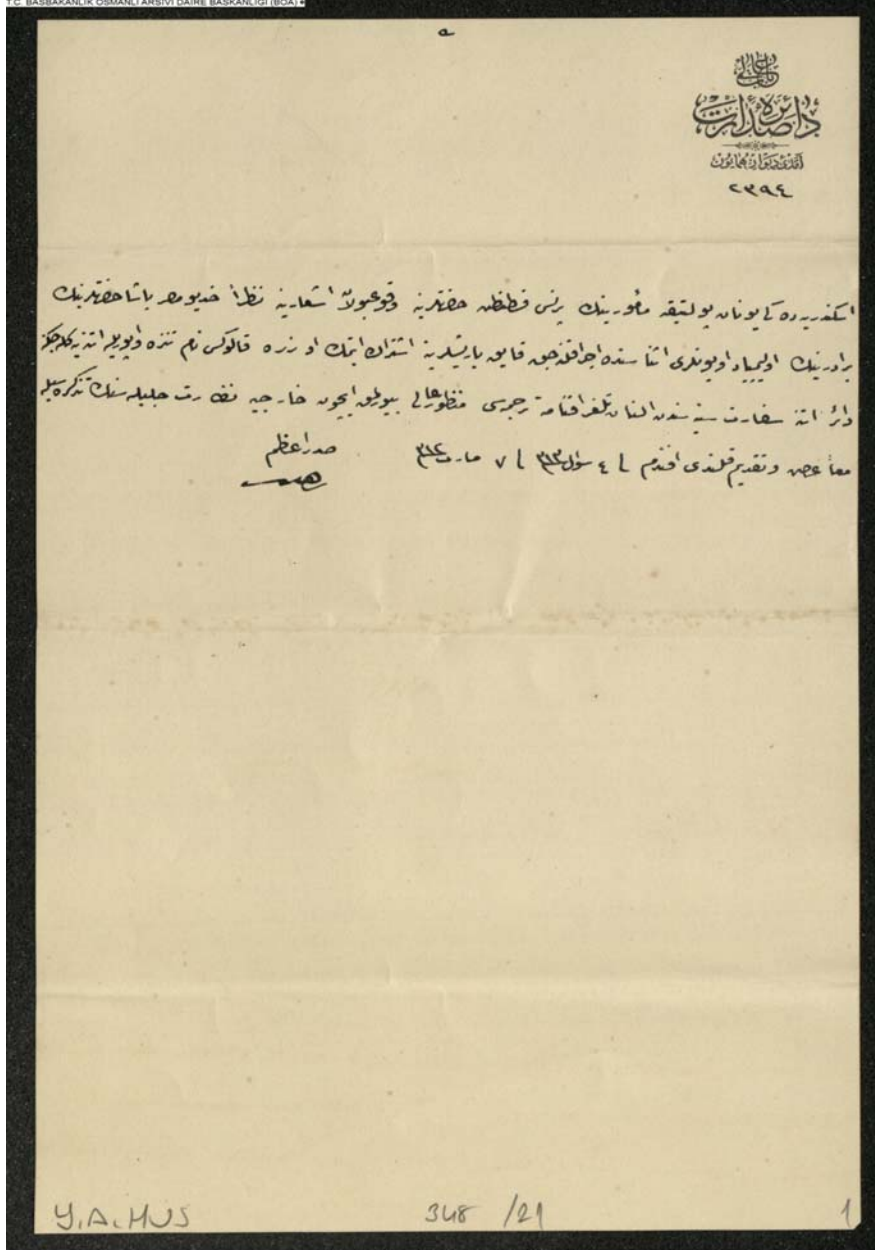 T.C. BAŞBAKANLIK OSMANLI ARŞİVİ DAİRE BAŞKANLIĞI (BOA)
باب عالی
دائرهٔ صدارت
آمدی دیوان همایون
٢٣٩٤
اسکندریه ده کی یونان پولتیقه مأمورینك پرنس قسطنطین حضرتلرینه وقوعبولان اشعارینه نظراً خدیو مصر پاشا حضرتلرینك
برادرینك اولیمپیاد اویونلری اثناسنده اجرا قلنه جق قایق یاریشلرینه اشتراك ایتمك اوزره فالوکس نام تنزه واپوریله آتنه یه کله جکنه
دائر آتنه سفارت سنیه سندن النان تلغرافنامه ترجمه سی منظور عالی بیورلمق ایچون خارجیه نظارت جلیله سنك تذکره سیله
معاً عرض و تقدیم قلندی افندم فی ٤ شوال ٣١٣ فی ٧ مارت ٣١٢
صدر اعظم
Y.A.HUS
348 /21
1